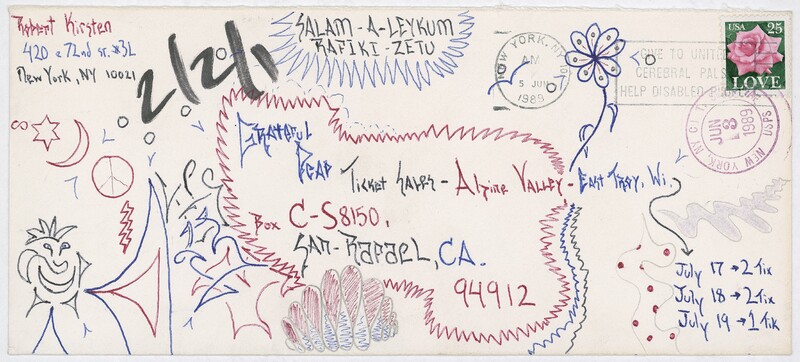 Robert Kirsten
420 e 72nd st. #3L
New York, NY 10021
2/2/1
SALAM-A-LEYKUM
RAFIKI-ZETU
NEW YORK, NY
AM
5 JUN
1989
GIVE TO UNITED
CEREBRAL PALSY
HELP DISABLED PEOPLE
USA 25
LOVE
NEW YORK, NY
USPS
JUN
1989
Grateful
Dead
Ticket Sales - Alpine Valley - East Troy, Wi.
Box C-S8150,
San-Rafael, CA.
94912
July 17 → 2 Tix
July 18 → 2 Tix
July 19 → 1 Tik